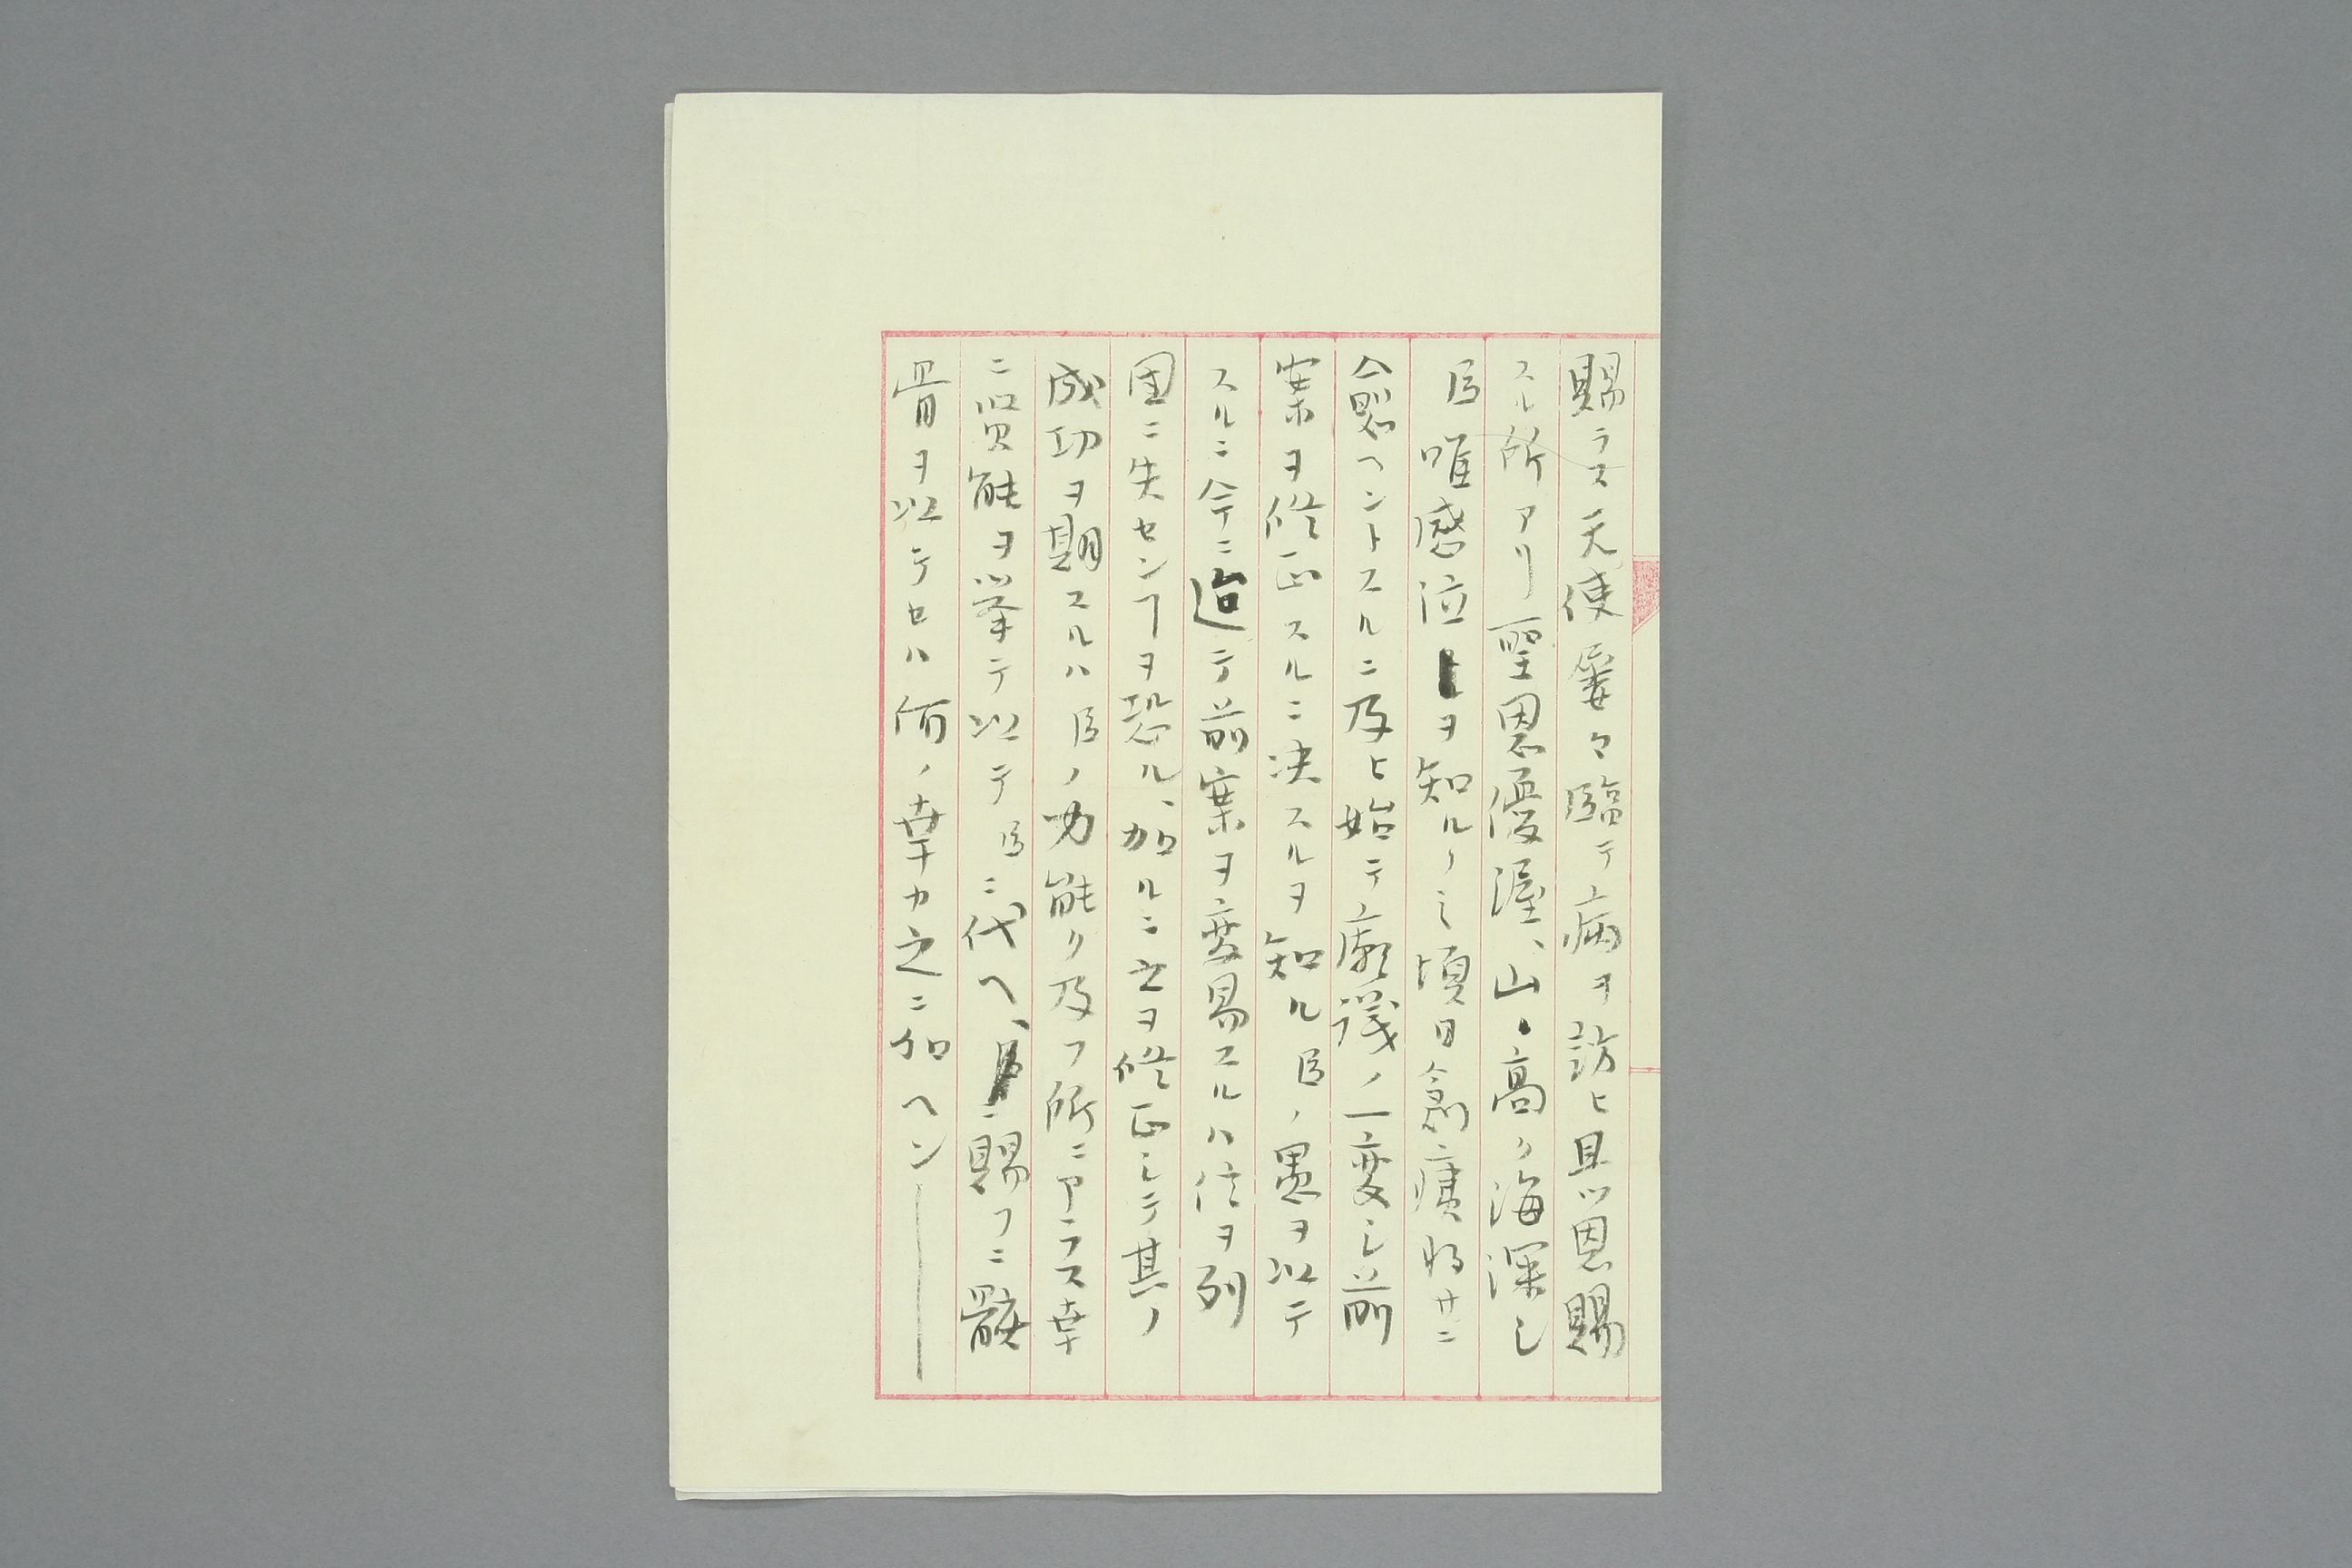 賜ラス天使屢々臨テ病ヲ訪ヒ且ツ恩賜
スル所アリ聖恩優渥、山ノ高ク海深シ
臣唯感泣ヲ知ルノミ頃日兪瘼将サニ
愈ヘントスルニ及ヒ始テ廟議ノ一変シ前
案ヲ修正スルニ決スルヲ知ル臣ノ愚ヲ以テ
スルニ今ニ迨テ前案ヲ変易スルハ信ヲ列
国ニ失センヿヲ恐ル、加ルニ之ヲ修正シテ其ノ
成功ヲ期スルハ臣ノ力能ク及フ所ニアラス幸
ニ賢能ヲ挙テ以テ臣ニ代ヘ、賜フニ骸
骨ヲ以テセハ何ノ幸カ之ニ加ヘン